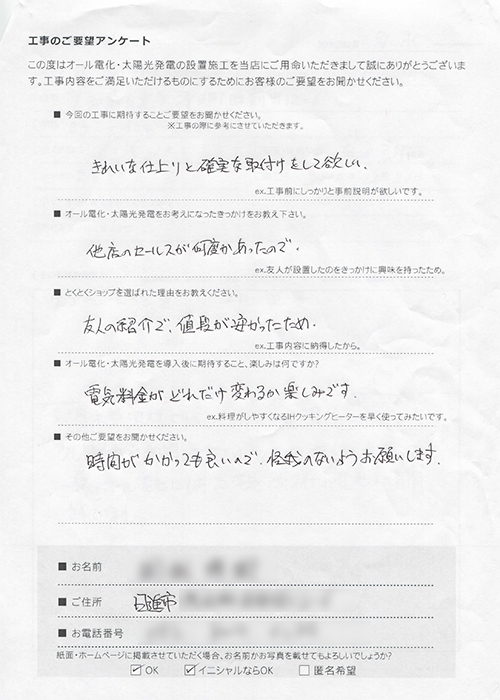 工事のご要望アンケート
この度はオール電化・太陽光発電の設置施工を当店にご用命いただきまして誠にありがとうございま
す。工事内容をご満足いただけるものにするためにお客様のご要望をお聞かせください。
■ 今回の工事に期待することご要望をお聞かせください。
※工事の際に参考にさせていただきます。
きれいな仕上りと確実な取付けをして欲しい。
ex.工事前にしっかりと事前説明が欲しいです。
■ オール電化・太陽光発電をお考えになったきっかけをお教え下さい。
他店のセールスが何度かあったので。
ex.友人が設置したのをきっかけに興味を持ったため。
■ とくとくショップを選ばれた理由をお教えください。
友人の紹介で、値段が安かったため。
ex.工事内容に納得したから。
■ オール電化・太陽光発電を導入後に期待すること、楽しみは何ですか?
電気料金がどれだけ変わるか楽しみです。
ex.料理がしやすくなるIHクッキングヒーターを早く使ってみたいです。
■ その他ご要望をお聞かせください。
時間がかかっても良いので、怪我のないようお願いします。
■ お名前
■ ご住所 日進市
■ お電話番号
紙面・ホームページに掲載させていただく場合、お名前かお写真を載せてもよろしいでしょうか?
☑ OK ☑ イニシャルならOK □ 匿名希望